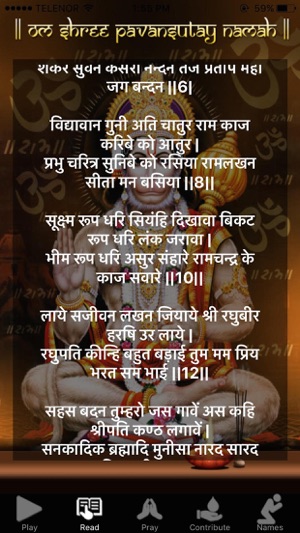 ●●●●● TELENOR 1:53 PM 59%
|| OM SHREE PAVANSUTAY NAMAH ||
शंकर सुवन केसरी नन्दन तेज प्रताप महा
जग बन्दन ||6|
विद्यावान गुनी अति चातुर राम काज
करिबे को आतुर |
प्रभु चरित्र सुनिबे को रसिया रामलखन
सीता मन बसिया ||8||
सूक्ष्म रूप धरि सियंहि दिखावा बिकट
रूप धरि लंक जरावा |
भीम रूप धरि असुर संहारे रामचन्द्र के
काज सवारे ||10||
लाये सजीवन लखन जियाये श्री रघुबीर
हरषि उर लाये |
रघुपति कीन्हि बहुत बड़ाई तुम मम प्रिय
भरत सम भाई ||12||
सहस बदन तुम्हरो जस गावें अस कहि
श्रीपति कण्ठ लगायें |
सनकादिक ब्रह्मादि मुनीसा नारद सारद
Play Read Pray Contribute Names